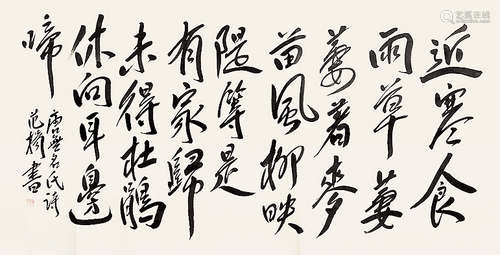 近寒食
雨草萋
萋着麦
苗风柳映
隄等是
有家归
未得杜鹃
休向耳边
啼
唐无名氏诗
范扬书